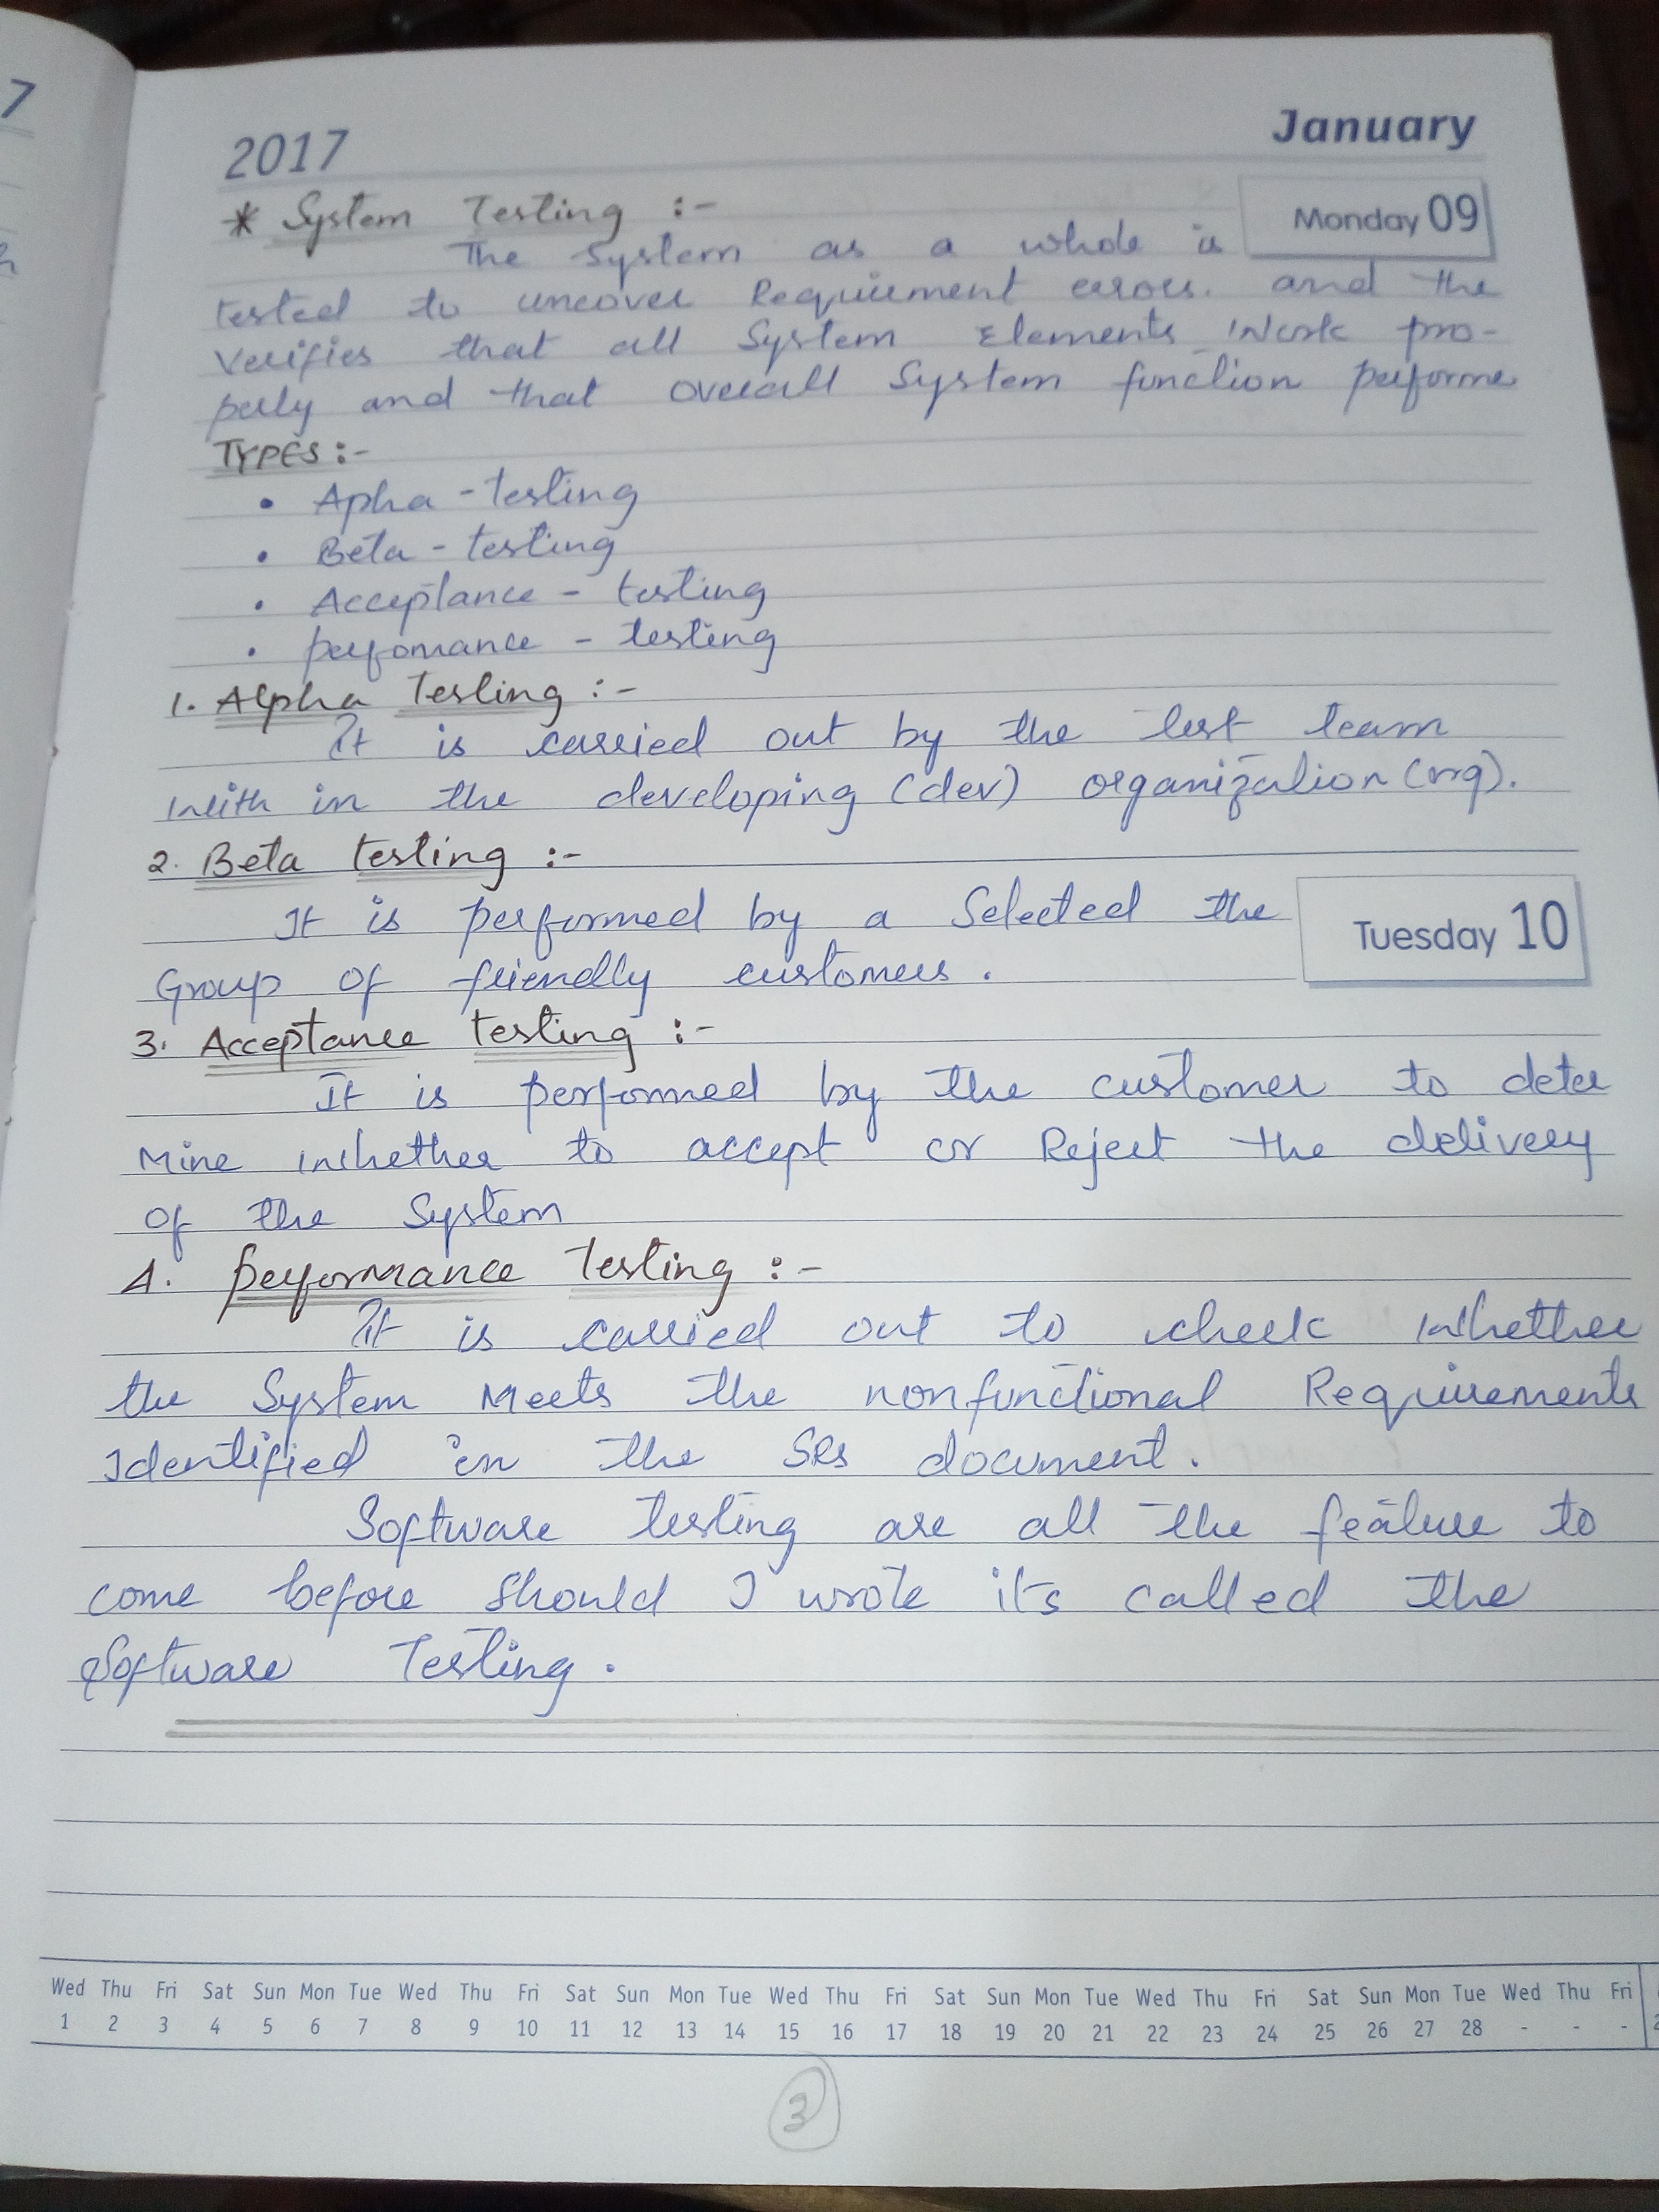 7
2017
January
Monday 09
* System Testing :-
The System as a whole is
tested to uncover Requirement errors. and the
Verifies that all System Elements Work pro-
perly and that overall System function performe
TYPES :-
• Apha - testing
• Beta - testing
• Acceptance - testing
• perfomance - testing
1. Alpha Testing :-
It is carried out by the test team
with in the developing (dev) organization (org).
2. Beta testing :-
It is performed by a Selected the
Tuesday 10
Group of friendly customers.
3. Acceptance testing :-
It is performed by the customer to deter
Mine whether to accept or Reject the delivery
of the System
4. performance Testing :-
It is carried out to check whether
the System Meets the nonfunctional Requirements
Identified in the SRS document.
Software testing are all the feature to
come before should I wrote it's called the
Software Testing.
Wed Thu Fri Sat Sun Mon Tue Wed Thu Fri Sat Sun Mon Tue Wed Thu Fri Sat Sun Mon Tue Wed Thu Fri Sat Sun Mon Tue Wed Thu Fri
1 2 3 4 5 6 7 8 9 10 11 12 13 14 15 16 17 18 19 20 21 22 23 24 25 26 27 28 - - -
3